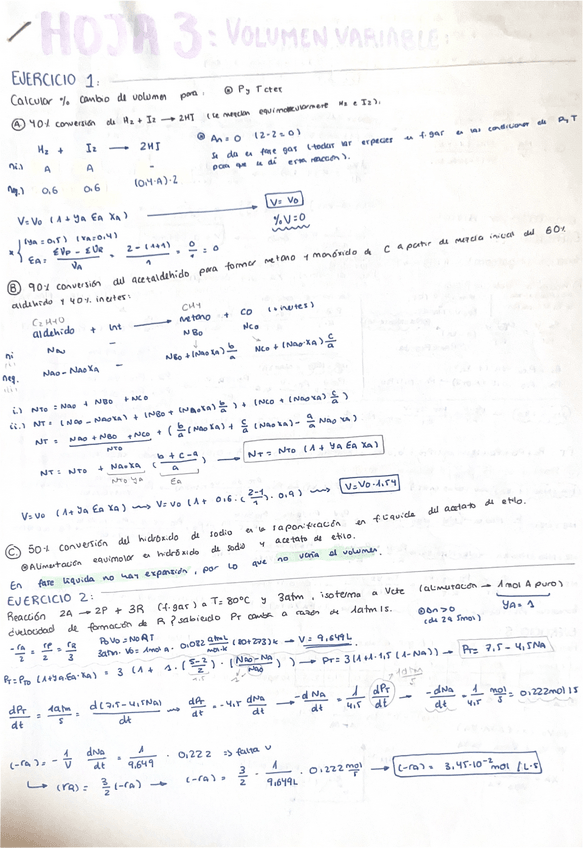 HOJA 3: VOLUMEN VARIABLE:
EJERCICIO 1:
Calcular % cambio de volumen para: ⊛ P y T ctes
Ⓐ 40% conversión de H2 + I2 → 2HI (se mezclan equimolecularmente H2 e I2).
H2 + I2 → 2HI
⊛ Δn = 0 (2-2=0)
se da en fase gas (todas las especies en f.gas en las condiciones de P, T
para que se dé esta reacción).
ni.) A A -
neq.) 0,6 0,6 (0,4·A)·2
V = V0 (1 + yA EA XA) → V = V0
%V = 0
* { (yA = 0,5) (XA = 0,4)
EA = (ΣVP - ΣVR)/VA = (2-(1+1))/1 = 0/1 = 0
Ⓑ 90% conversión del acetaldehído para formar metano y monóxido de C a partir de mezcla inicial del 60%
aldehído y 40% inertes:
C2H4O CH4
aldehído + int → metano + CO (+ inertes)
ni NA0 - NB0 NC0
neq. NA0 - NA0XA - NB0 + (NA0XA) b/a NC0 + (NA0·XA) c/a
i.) NT0 = NA0 + NB0 + NC0
ii.) NT = (NA0 - NA0XA) + (NB0 + (NA0XA) b/a) + (NC0 + (NA0XA) c/a)
NT = NA0 + NB0 + NC0 + (b/a (NA0XA) + c/a (NA0XA) - a/a NA0XA)
NT0
NT = NT0 + NA0XA ((b+c-a)/a) → NT = NT0 (1 + yA EA XA)
NT0 yA EA
V = V0 (1 + yA EA XA) → V = V0 (1 + 0,6·((2-1)/1)·0,9) → V = V0·1,54
Ⓒ 50% conversión del hidróxido de sodio en la saponificación en f.líquida del acetato de etilo.
⊛ Alimentación equimolar en hidróxido de sodio y acetato de etilo.
En fase líquida no hay expansión, por lo que no varía el volumen.
EJERCICIO 2:
Reacción 2A → 2P + 3R (f.gas) a T = 80°C y 3atm, isoterma a Vcte (alimentación → 1 mol A puro)
¿velocidad de formación de R? sabiendo PT cambia a razón de 1atm/s. ⊛ Δn > 0 yA = 1
(de 2 a 5mol)
-rA/2 = rP/2 = rR/3 P0V0 = N0RT
3atm·V0 = 1mol A·0,082 atm·L/mol·K (80+273)K → V = 9,649L
PT = PT0 (1+yA·EA·XA) = 3 (1 + 1·((5-2)/2)·((NA0-NA)/NA0)) → PT = 3(1+1·1,5(1-NA)) → PT = 7,5 - 4,5NA
1,5
dPT/dt = 1atm/s = d(7,5-4,5NA)/dt → dPT/dt = -4,5 dNA/dt → -dNA/dt = 1/4,5 dPT/dt → -dNA/dt = 1/4,5 mol/s = 0,222mol/s
1atm/s
(-rA) = -1/V dNA/dt = 1/9,649 · 0,222 ⇒ falta V
↳ (rR) = 3/2 (-rA) → (-rA) = 3/2 · 1/9,649L · 0,222 mol/s → (-rA) = 3,45·10⁻² mol/L·s